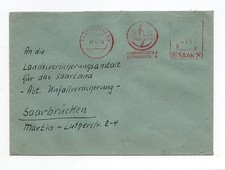 An die
Landesversicherungsanstalt
für das Saarland
- Abt. Unfallversicherung -
Saarbrücken
Martin - Lutherstr. 2-4
SAAR